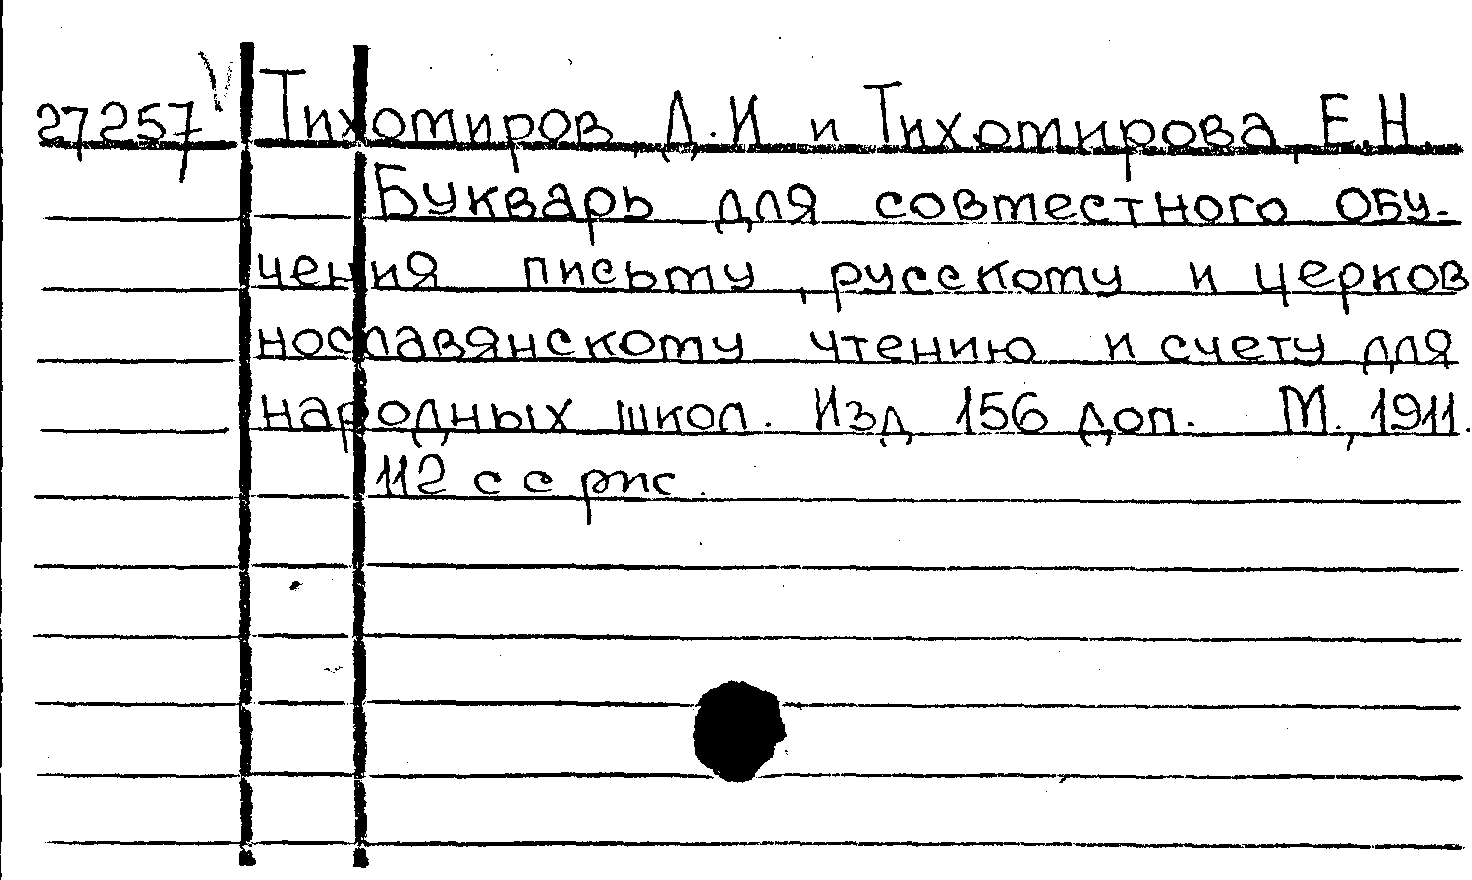 27257 V Тихомиров Д.И и Тихомирова, Е.Н
Букварь для совместного обу-
чения письму, русскому и церков
нославянскому чтению и счету для
народных школ. Изд 156 доп. М., 1911.
112 с с рпс.